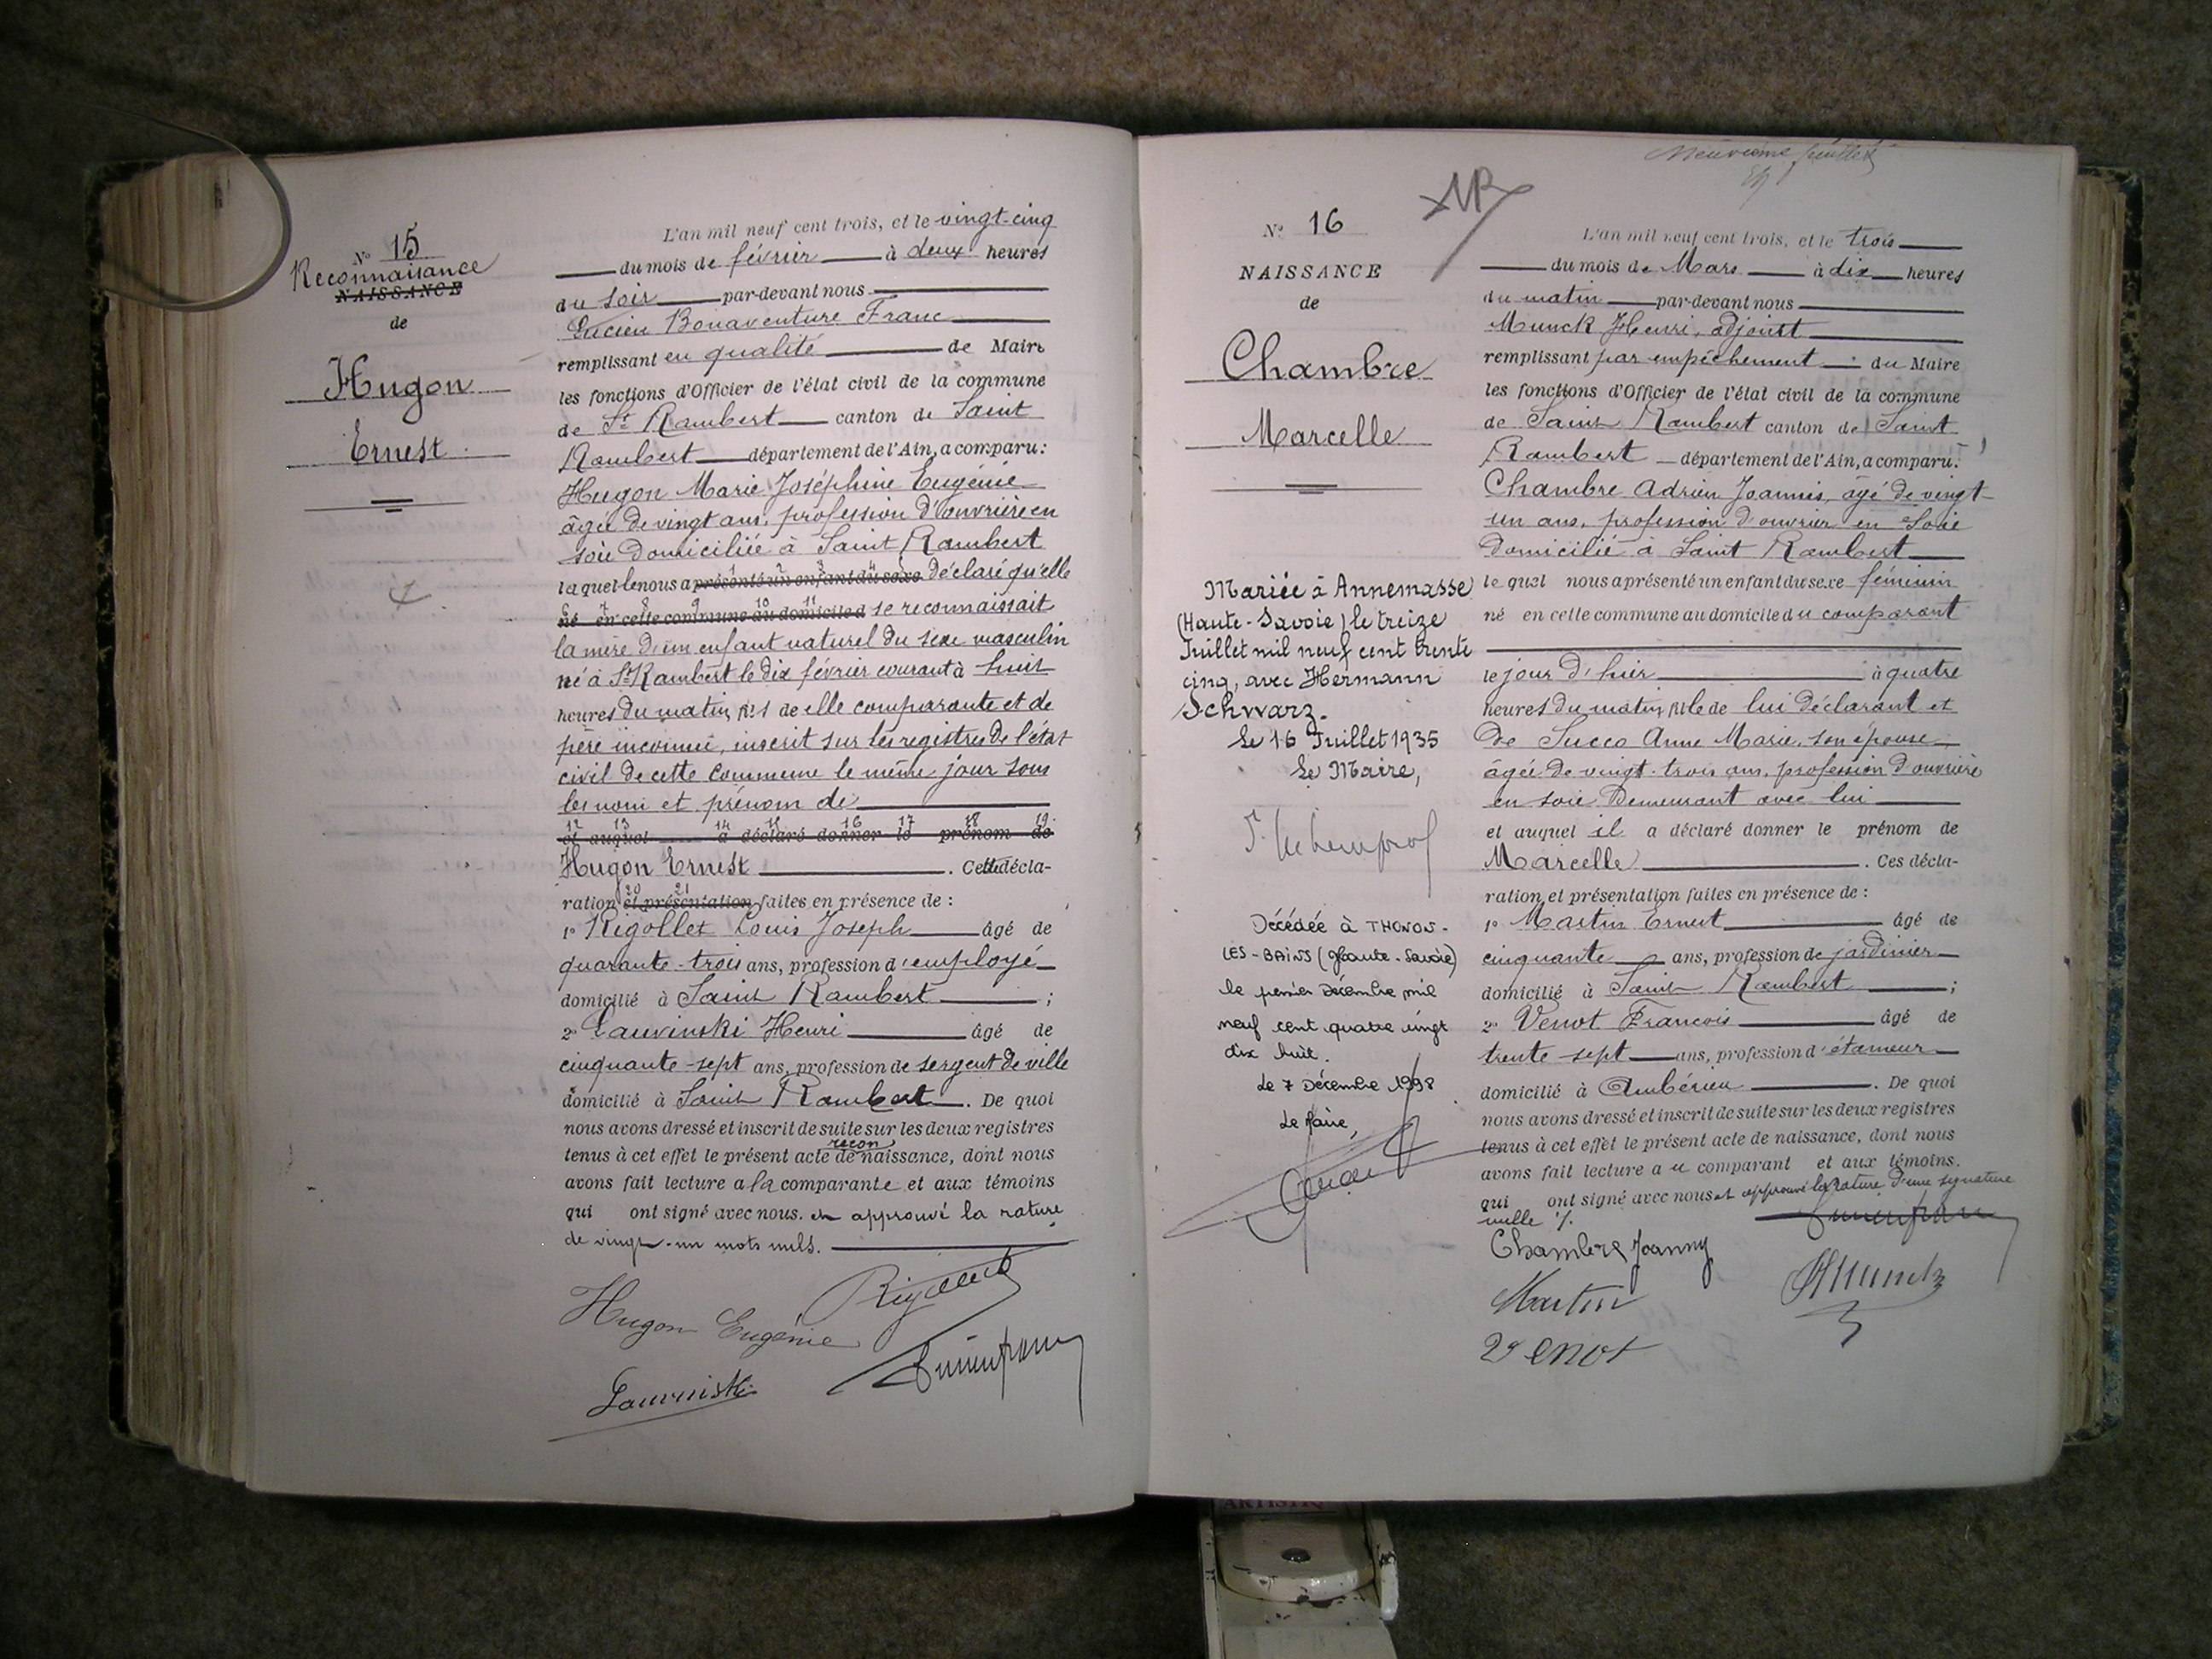 N° 15
Reconnaissance
NAISSANCE
de
Hugon
Ernest
L'an mil neuf cent trois, et le vingt-cinq
du mois de février à deux heures
du soir par-devant nous
Lucien Bonaventure Franc
remplissant en qualité de Maire
les fonctions d'Officier de l'état civil de la commune
de St Rambert canton de Saint
Rambert département de l'Ain, a comparu:
Hugon Marie Joséphine Eugénie
âgée de vingt ans, profession d'ouvrière en
soie domiciliée à Saint Rambert
laquelle nous a présenté un enfant du sexe déclaré qu'elle
né en cette commune au domicile d se reconnaissait
la mère d'un enfant naturel du sexe masculin
né à St Rambert le dix février courant à huit
heures du matin, fils de elle comparante et de
père inconnu, inscrit sur les registres de l'état
civil de cette commune le même jour sous
les nom et prénom de
12 13 14 15 16 17 18 19
et auquel a déclaré donner le prénom de
Hugon Ernest. Cette décla-
20 21
ration et présentation faites en présence de :
1° Rigollet Louis Joseph âgé de
quarante-trois ans, profession d'employé
domicilié à Saint Rambert ;
2° Lauvinski Henri âgé de
cinquante-sept ans, profession de sergent de ville
domicilié à Saint Rambert. De quoi
nous avons dressé et inscrit de suite sur les deux registres
recon
tenus à cet effet le présent acte de naissance, dont nous
avons fait lecture a la comparante et aux témoins
qui ont signé avec nous. et approuvé la rature
de vingt-un mots nuls.
Hugon Eugénie
N° 16
NAISSANCE
de
Chambre
Marcelle
Mariée à Annemasse
(Haute-Savoie) le treize
Juillet mil neuf cent trente
cinq, avec Hermann
Schwarz.
Le 16 Juillet 1935
Le Maire,
Décédée à THONON-
LES-BAINS (Haute-Savoie)
le premier Décembre mil
neuf cent quatre vingt
dix huit.
Le 7 Décembre 1998
Le Maire,
Neuvième feuillet
L'an mil neuf cent trois, et le trois
du mois de Mars à dix heures
du matin par-devant nous
Munck Henri, adjoint
remplissant par empêchement du Maire
les fonctions d'Officier de l'état civil de la commune
de Saint Rambert canton de Saint
Rambert département de l'Ain, a comparu:
Chambre Adrien Joannis, âgé de vingt
un ans, profession d'ouvrier en soie
domicilié à Saint Rambert
lequel nous a présenté un enfant du sexe féminin
né en cette commune au domicile du comparant
le jour d'hier à quatre
heures du matin, fille de lui déclarant et
de Succo Anne Marie, son épouse
âgée de vingt trois ans, profession d'ouvrière
en soie demeurant avec lui
et auquel il a déclaré donner le prénom de
Marcelle. Ces décla-
ration et présentation faites en présence de :
1° Martin Ernest âgé de
cinquante ans, profession de jardinier
domicilié à Saint Rambert ;
2° Venot Francois âgé de
trente-sept ans, profession d'étameur
domicilié à Ambérieu. De quoi
nous avons dressé et inscrit de suite sur les deux registres
tenus à cet effet le présent acte de naissance, dont nous
avons fait lecture a u comparant et aux témoins.
qui ont signé avec nous et approuvé la rature d'une signature
nulle ./.
Chambre Joanny
Martin
Venot
HMunck